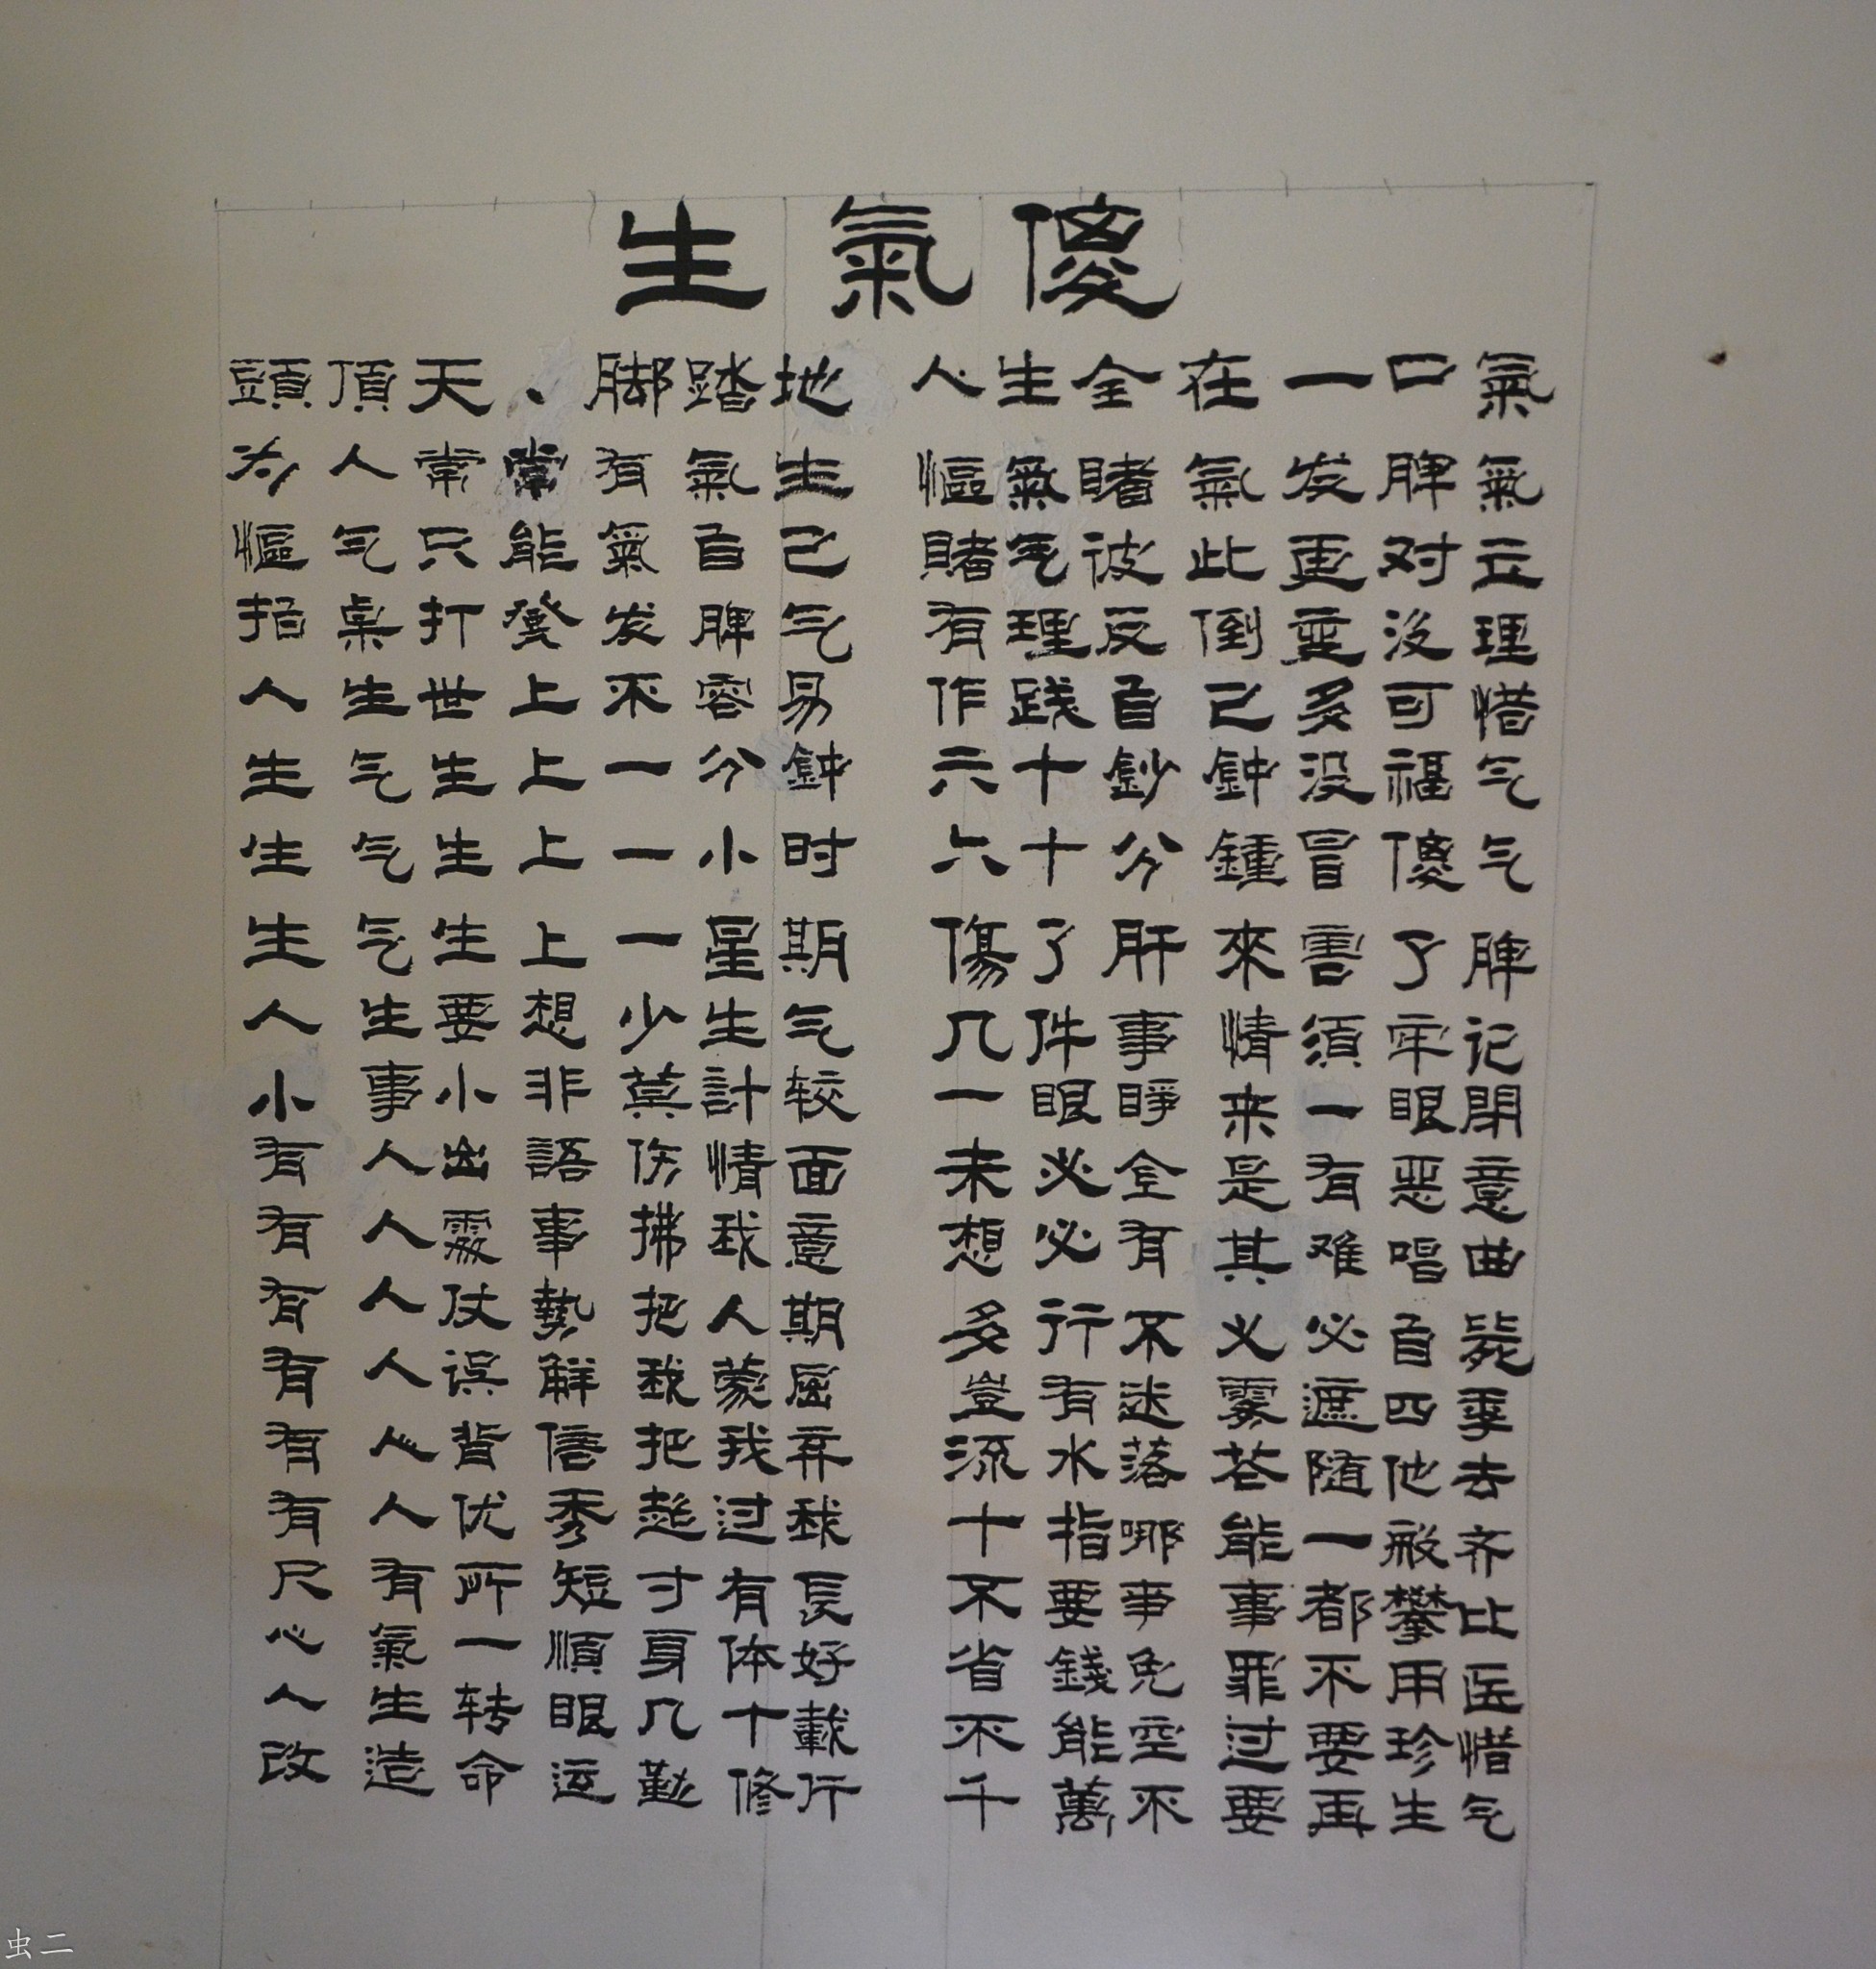 生氣傻
頭頂天、脚踏地 人生全在一口氣
为人常常有氣生 慪氣睹氣发脾氣
慪气只能氣自己 賭气彼此更对立
指桌打凳发脾气 有理反倒变没理
人生世上不容易 作践自己多可惜
生气生上一分鈡 六十鈔鈡没福气
生气生上一小时 六十分鍾冒傻气
生气生上一星期 傷了肝來害了脾
人生要想少生气 几件事情須牢记
小事小非莫計较 一眼睁来一眼閉
有人出語伤情面 未必全是有恶意
有人處事拂我意 想必有其难唱曲
有人仗勢把人期 多行不义必自毙
有人误解我蒙屈 豈有迷雾遮四季
有人背信把我弃 流水落花随他去
有人优秀超过我 十指哪能一般齐
尺有所短寸有長 不要事事都攀比
心氣一順身体好 省錢免罪不用医
人生转眼几十載 不能空过要珍惜
改造命运勤修行 千萬不要再生气
虫二